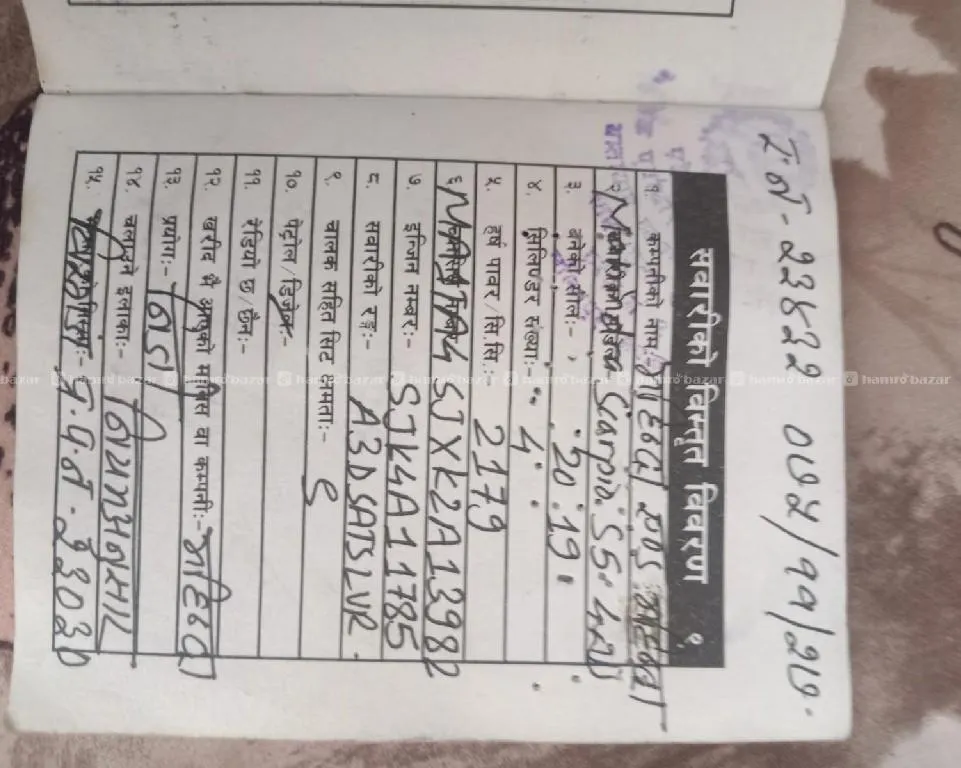 द.नं-२३४२२ ०७५/११/२७.
सवारीको विस्तृत विवरण १.
१. कम्पनीको नाम:- महिन्द्रा एण्ड महिन्द्रा
२. Scorpio S5 4WD
३. बनेको साल:- 2019
४. सिलिण्डर संख्या:- 4
५. हर्ष पावर/सि.सि: 2179
६. MA1TA4SJXK2A13982
७. इन्जिन नम्बर:- SJK4A11785
८. सवारीको रङ्ग:- A3DSATSLVR
९. चालक सहित सिट क्षमता:- 9
१०. पेट्रोल/डिजेल:-
११. रेडियो छ/छैन:-
१२. खरीद भै आएको मालिस वा कम्पनी:- महिन्द्रा
१३. प्रयोग:- निजी
१४. चलाउने इलाका:- नियमअनुसार
१५. प्र.प.नं.-
hamrobazar hamrobazar hamrobazar hamrobazar hamrobazar hamrobazar hamrobazar hamrobazar